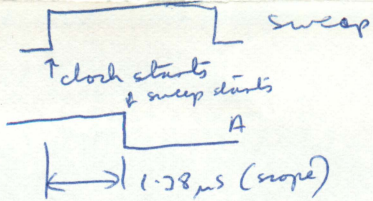 sweep
↑clock starts
↓ sweep starts
A
1.38 μs (scope)